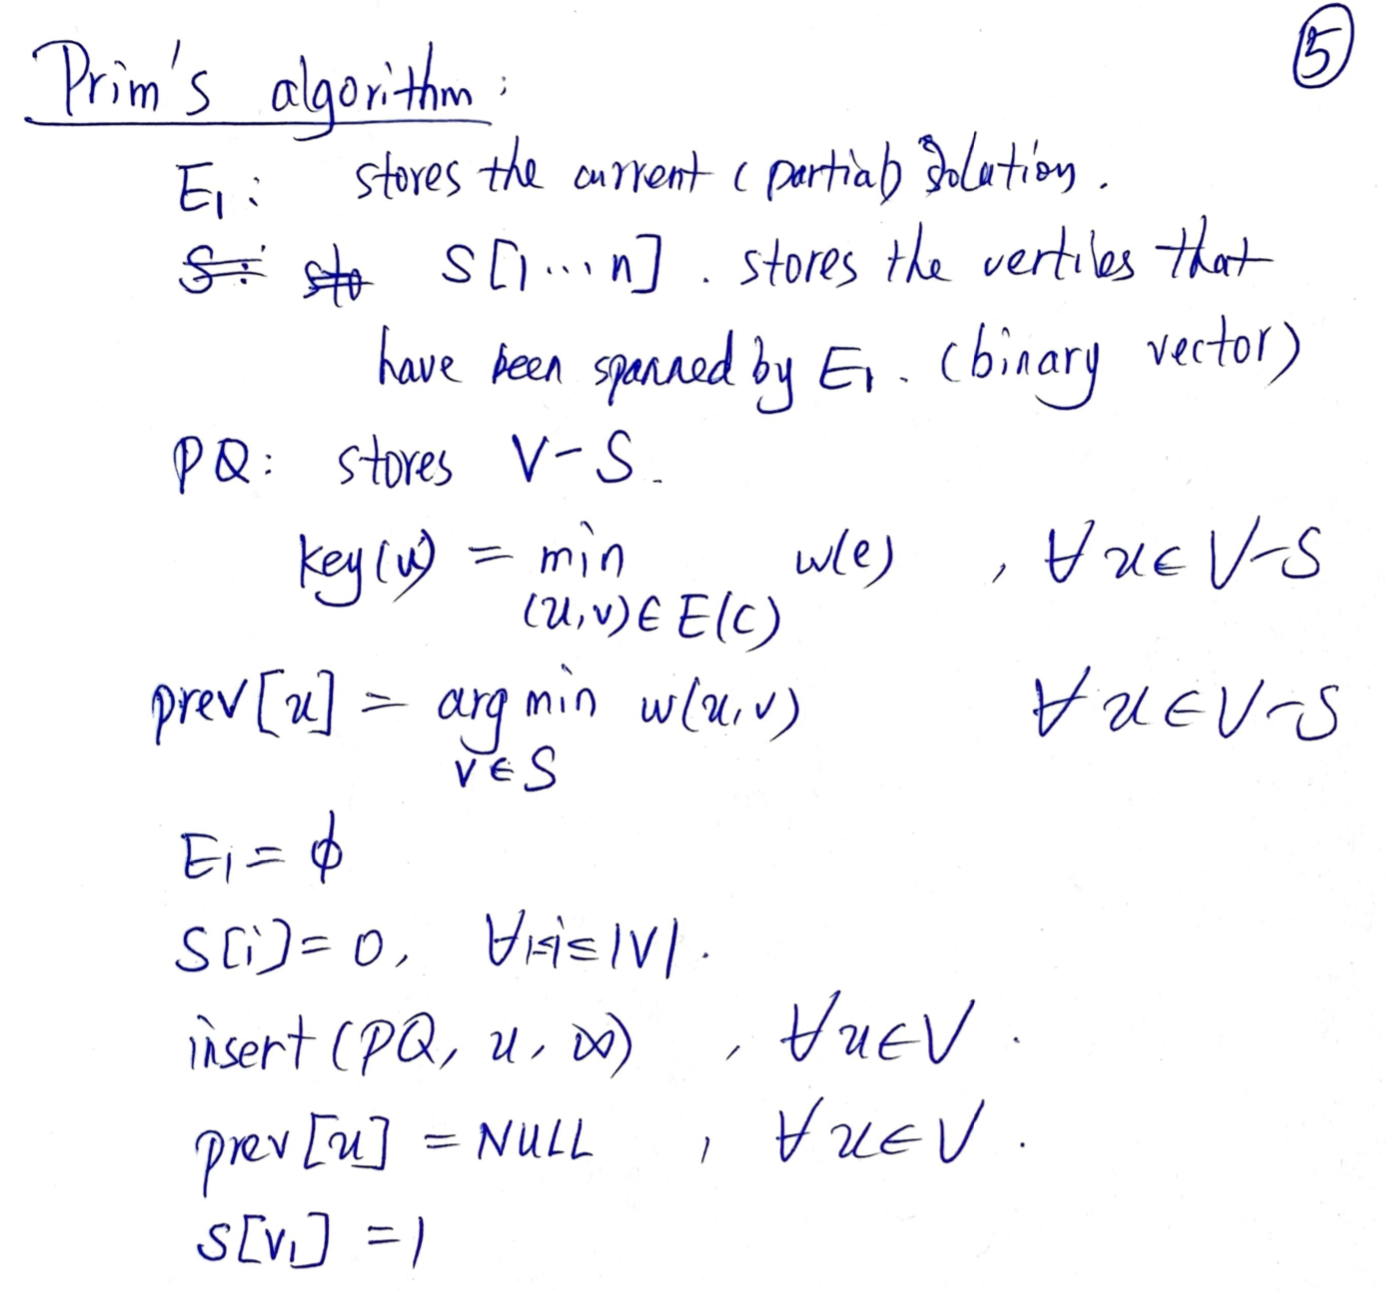 ⑤
Prim's algorithm:
E₁: stores the current (partial) solution.
S[1...n]. stores the vertices that
have been spanned by E₁. (binary vector)
PQ: stores V-S.
key(u) = min w(e) , ∀ u∈ V-S
(u,v)∈ E(C)
prev[u] = arg min w(u,v) ∀ u∈V-S
v∈S
E₁ = ϕ
S[i] = 0, ∀1≤i≤|V|.
insert(PQ, u, ∞) , ∀u∈V.
prev[u] = NULL , ∀ u∈V.
S[v₁] = 1